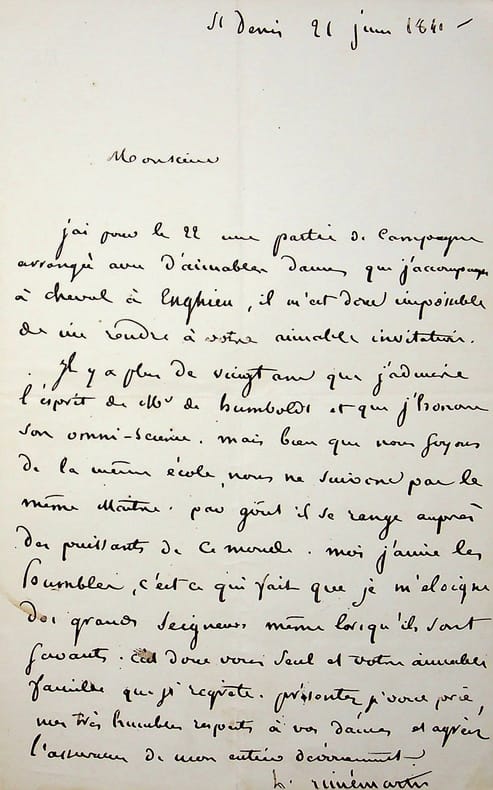 St Denis 21 juin 1841
Monsieur
j'ai pour le 22 une partie de Campagne
arrangée avec d'aimables dames que j'accompagne
à cheval à Enghien, il m'est donc impossible
de me rendre à votre aimable invitation.
Il y a plus de vingt ans que j'admire
l'esprit de Mr de humboldt et que j'honore
son omni-science. mais bien que nous soyons
de la même école, nous ne suivons pas le
même Maitre. par goût il se range auprès
des puissants de ce monde. moi j'aime les
humbles, c'est ce qui fait que je m'eloigne
des grands Seigneurs même lorsqu'ils sont
Savants. c'est donc vous seul et votre aimable
famille que je regrette. présentez je vous prie
mes très humbles respects à vos dames et agréez
l'assurance de mon entier dévouement